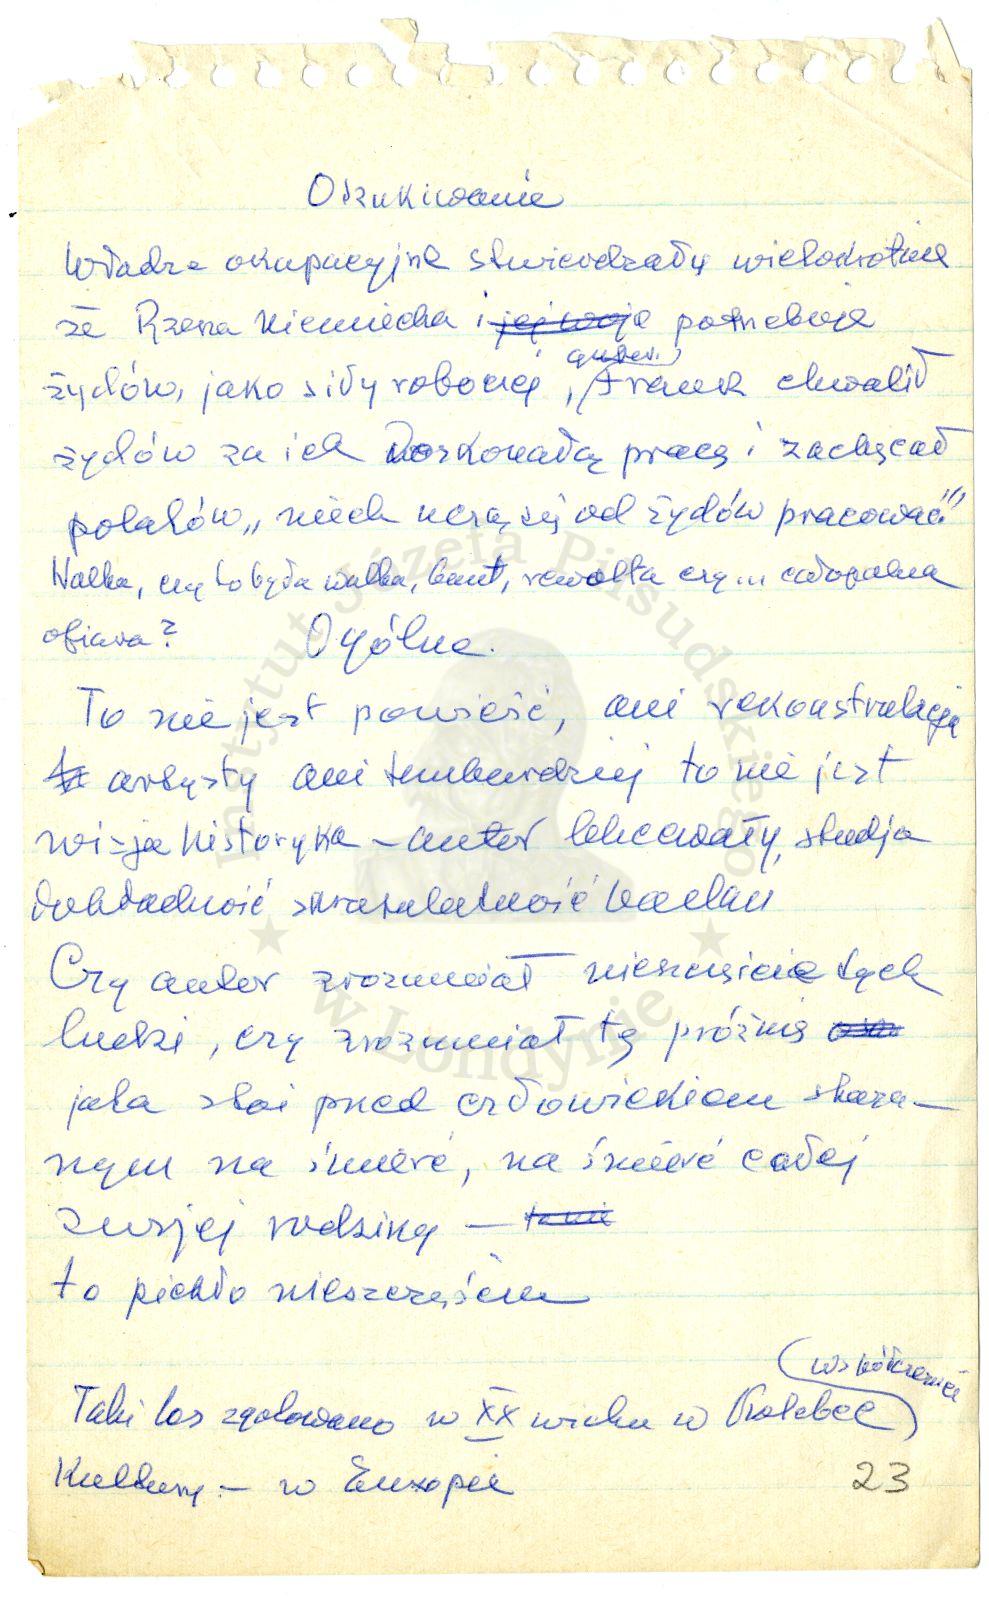 Oszukiwanie
Władze okupacyjne stwierdzały wielokrotnie
że Rzesza Niemiecka i potrzebuje
żydów, jako siły roboczej, guber. Frank chwalił
żydów za ich doskonałą pracę i zachęcał
polaków „niech uczą się od żydów pracować!"
Walka, czy to była walka, bunt, rewolta czy... całopalna
ofiara?
Ogólne.
To nie jest powieść, ani rekonstrukcja
artysty ani tembardziej to nie jest
wizja historyka – autor studja
dokładność
Czy autor zrozumiał nieszczęście tych
ludzi, czy zrozumiał tę próżnię
jaka stoi przed człowiekiem skaza-
nym na śmierć, na śmierć całej
swojej rodziny –
to piekło nieszczęścia
(współczesnej)
Taki los zgotowano w XX wieku w Kolebce
Kultury – w Europie
23
Instytut Józefa Piłsudskiego
w Londynie